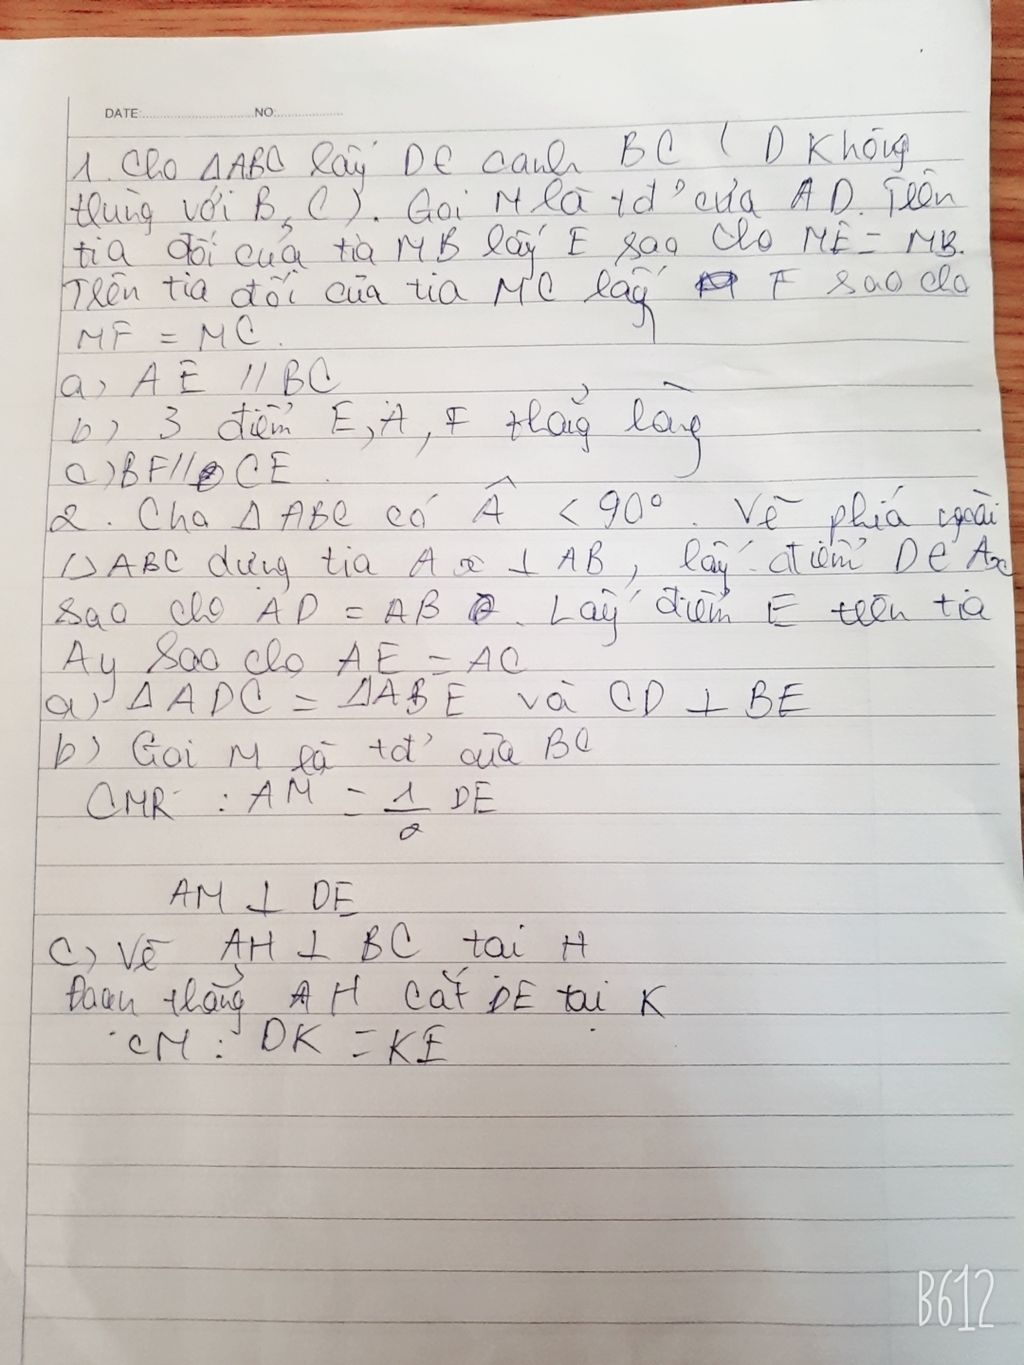 DATE: NO
1. Cho ΔABC lấy D ∈ cạnh BC ( D không
trùng với B, C ). Gọi M là tđ' của AD. Trên
tia đối của tia MB lấy E sao cho ME = MB.
Trên tia đối của tia MC lấy F sao cho
MF = MC.
a) AE // BC
b) 3 điểm E, A, F thẳng hàng
c) BF // CE.
2. Cho Δ ABC có Â < 90°. Vẽ phía ngoài
Δ ABC dựng tia Ax ⊥ AB, lấy điểm D ∈ Ax
sao cho AD = AB. Lấy điểm E trên tia
Ay sao cho AE = AC
a) Δ ADC = ΔABE và CD ⊥ BE
b) Gọi M là tđ' của BC
CMR : AM = 1/2 DE
AM ⊥ DE
c) Vẽ AH ⊥ BC tại H
Đoạn thẳng AH cắt DE tại K
CM : DK = KE
B612